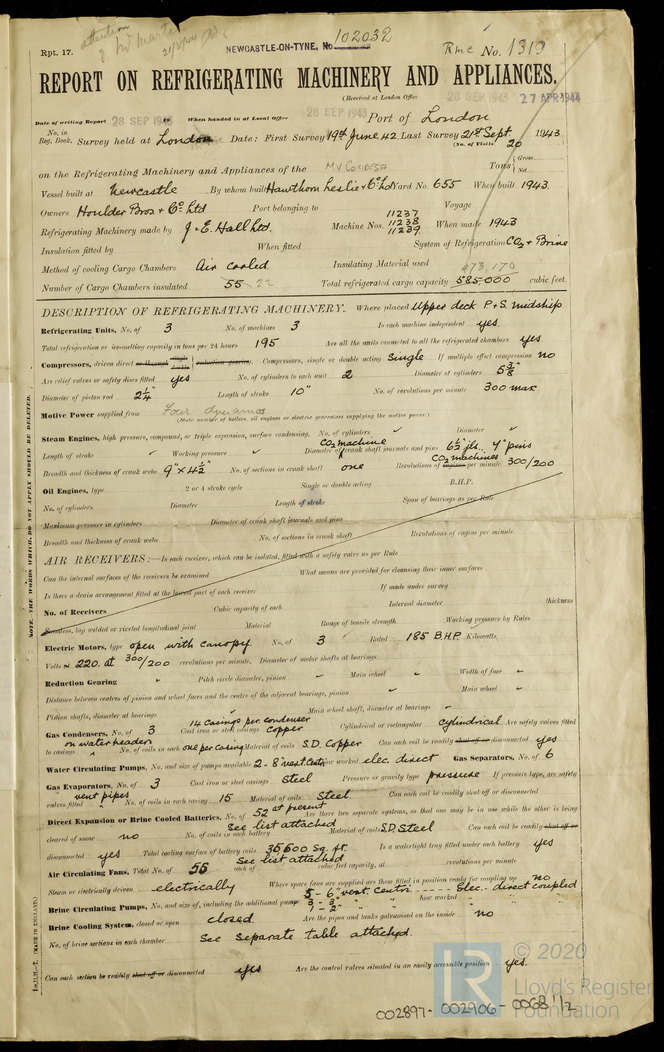 Rpt. 17.
attention
102032
NEWCASTLE-ON-TYNE, No
Rmc No. 1319
REPORT ON REFRIGERATING MACHINERY AND APPLIANCES.
(Received at London Office 28 SEP 1943 27 APR 1944
Date of writing Report 28 SEP 1943 When handed in at Local Office 28 SEP 1943 Port of London
No. in Reg. Book. Survey held at London Date: First Survey 19th June 42. Last Survey 21st Sept. 1943
(No. of Visits 20
on the Refrigerating Machinery and Appliances of the MV Condesa Tons Gross Net
Vessel built at Newcastle By whom built Hawthorn Leslie & Co Ltd Yard No. 655 When built 1943.
Owners Houlder Bros & Co. Ltd Port belonging to Voyage
Refrigerating Machinery made by J & E. Hall Ltd. Machine Nos. 11237 11238 11239 When made 1943
Insulation fitted by When fitted System of Refrigeration CO2 & Brine
Method of cooling Cargo Chambers Air cooled. Insulating Material used
473,170
Number of Cargo Chambers insulated 55 22 Total refrigerated cargo capacity 585,000 cubic feet.
DESCRIPTION OF REFRIGERATING MACHINERY. Where placed Upper deck P & S. midship
Refrigerating Units, No. of 3 No. of machines 3 Is each machine independent yes.
Total refrigeration or ice-making capacity in tons per 24 hours 195 Are all the units connected to all the refrigerated chambers yes
Compressors, driven direct or through single double reduction gearing. Compressors, single or double acting Single If multiple effect compression no
Are relief valves or safety discs fitted yes No. of cylinders to each unit 2 Diameter of cylinders 5 3/8"
Diameter of piston rod 2 1/4" Length of stroke 10" No. of revolutions per minute 300 max
Motive Power supplied from Four dynamos
(State number of boilers, oil engines or electric generators supplying the motive power.)
Steam Engines, high pressure, compound, or triple expansion, surface condensing. No. of cylinders Diameter
CO2 machine
Length of stroke Working pressure Diameter of crank shaft journals and pins 6 1/2" jls. 4" pins
CO2 machines
Breadth and thickness of crank webs 9" x 4 1/2" No. of sections in crank shaft one Revolutions of engines per minute 300/200
Oil Engines, type 2 or 4 stroke cycle Single or double acting B.H.P.
No. of cylinders Diameter Length of stroke Span of bearings as per Rule
Maximum pressure in cylinders Diameter of crank shaft journals and pins
Breadth and thickness of crank webs No. of sections in crank shaft Revolutions of engine per minute
AIR RECEIVERS:—Is each receiver, which can be isolated, fitted with a safety valve as per Rule
Can the internal surfaces of the receivers be examined What means are provided for cleansing their inner surfaces
Is there a drain arrangement fitted at the lowest part of each receiver If made under survey
No. of Receivers Cubic capacity of each Internal diameter thickness
Seamless, lap welded or riveted longitudinal joint Material Range of tensile strength Working pressure by Rules
Electric Motors, type open with canopy. No. of 3 Rated 185 B.H.P. Kilowatts,
Volts 220. at 300/200 revolutions per minute, Diameter of motor shafts at bearings
Reduction Gearing Pitch circle diameter, pinion Main wheel Width of face
Distance between centres of pinion and wheel faces and the centre of the adjacent bearings, pinion Main wheel
Pinion shafts, diameter at bearings Main wheel shaft, diameter at bearings
14 casings per condenser
Gas Condensers, No. of 3 Cast iron or steel casings copper Cylindrical or rectangular cylindrical Are safety valves fitted
on water headers
to casings No. of coils in each one per casing Material of coils S.D. Copper Can each coil be readily shut off or disconnected yes
Water Circulating Pumps, No. and size of pumps available 2 - 8" vert. Centri how worked elec. direct Gas Separators, No. of 6
Gas Evaporators, No. of 3 Cast iron or steel casings Steel Pressure or gravity type pressure If pressure type, are safety
vent pipes
valves fitted No. of coils in each casing 15 Material of coils Steel Can each coil be readily shut off or disconnected
Direct Expansion or Brine Cooled Batteries, No. of 52 at present Are there two separate systems, so that one may be in use while the other is being
cleared of snow no No. of coils in each battery See list attached Material of coils S.D. Steel Can each coil be readily shut off or
disconnected yes Total cooling surface of battery coils 35,600 sq. ft. Is a watertight tray fitted under each battery yes
Air Circulating Fans, Total No. of 55 each of See list attached cubic feet capacity, at revolutions per minute
Steam or electrically driven electrically Where spare fans are supplied are these fitted in position ready for coupling up no
Brine Circulating Pumps, No. and size of, including the additional pump 5 - 6" vert. Centri. how worked elec. direct coupled
Brine Cooling System, closed or open closed. Are the pipes and tanks galvanised on the inside no
No. of brine sections in each chamber See separate table attached.
Can each section be readily shut off or disconnected yes Are the control valves situated in an easily accessible position yes.
NOTE. THE WORDS WHICH DO NOT APPLY SHOULD BE DELETED.
(MADE IN ENGLAND.)
LR
© 2020
Lloyd's Register
Foundation
002897-002906-0068 1/2